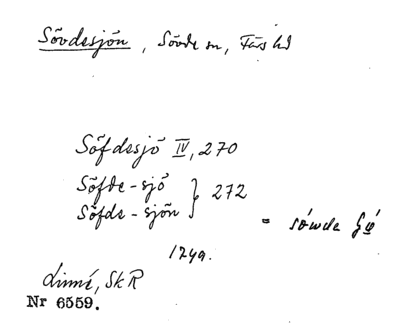 Sövdesjön, Sövde sn, Färs hd
Söfdesjö IV, 270
Söfde-sjö } 272
Söfde-sjön
= sówde
1749.
Linné, SkR
Nr 6559.